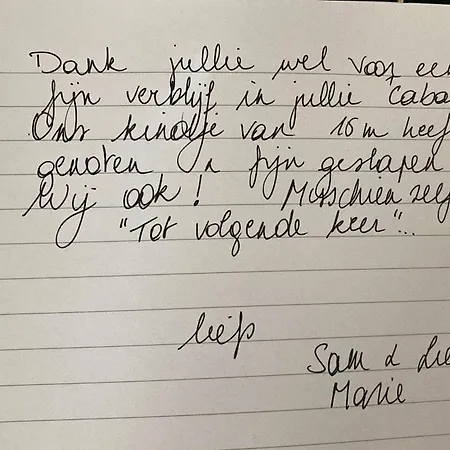 Dank jullie wel voor een
fijn verblijf in jullie Caba
Ons kindje van 16m heef
genoten n fijn geslapen
Wij ook! Misschien zelf
"Tot volgende keer"...
liefs
Sam & Lie
Marie